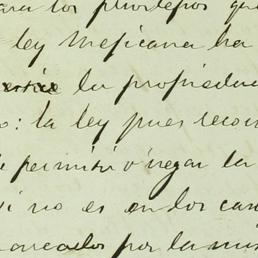 los privilegios que
ley Mejicana ha
la propiedad
: la ley pues recon
permitir ó negar la
si no es en los cas
marcados por la mis